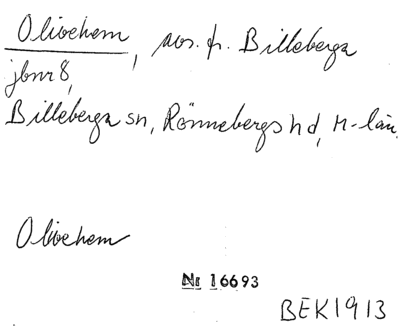 Olivehem, avs. fr. Billeberga
jbnr 8,
Billeberga sn, Rönnebergs hd, M-län.
Olivehem
Nr 16693
BEK 1913